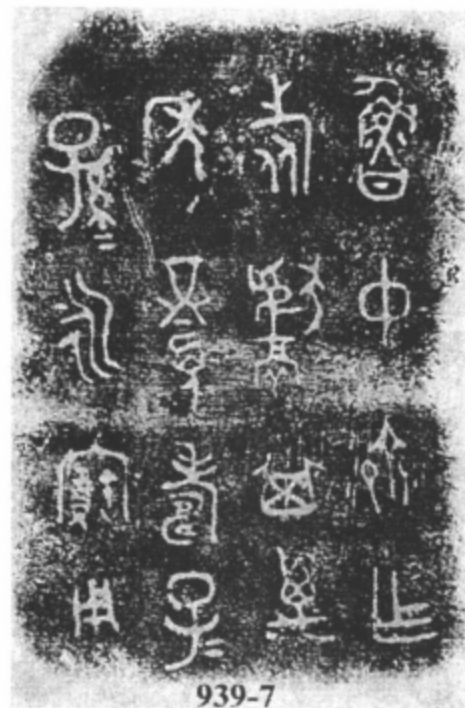 魯中齊乍
旅獻其萬
年眉壽子=
孫=永寶用
939-7